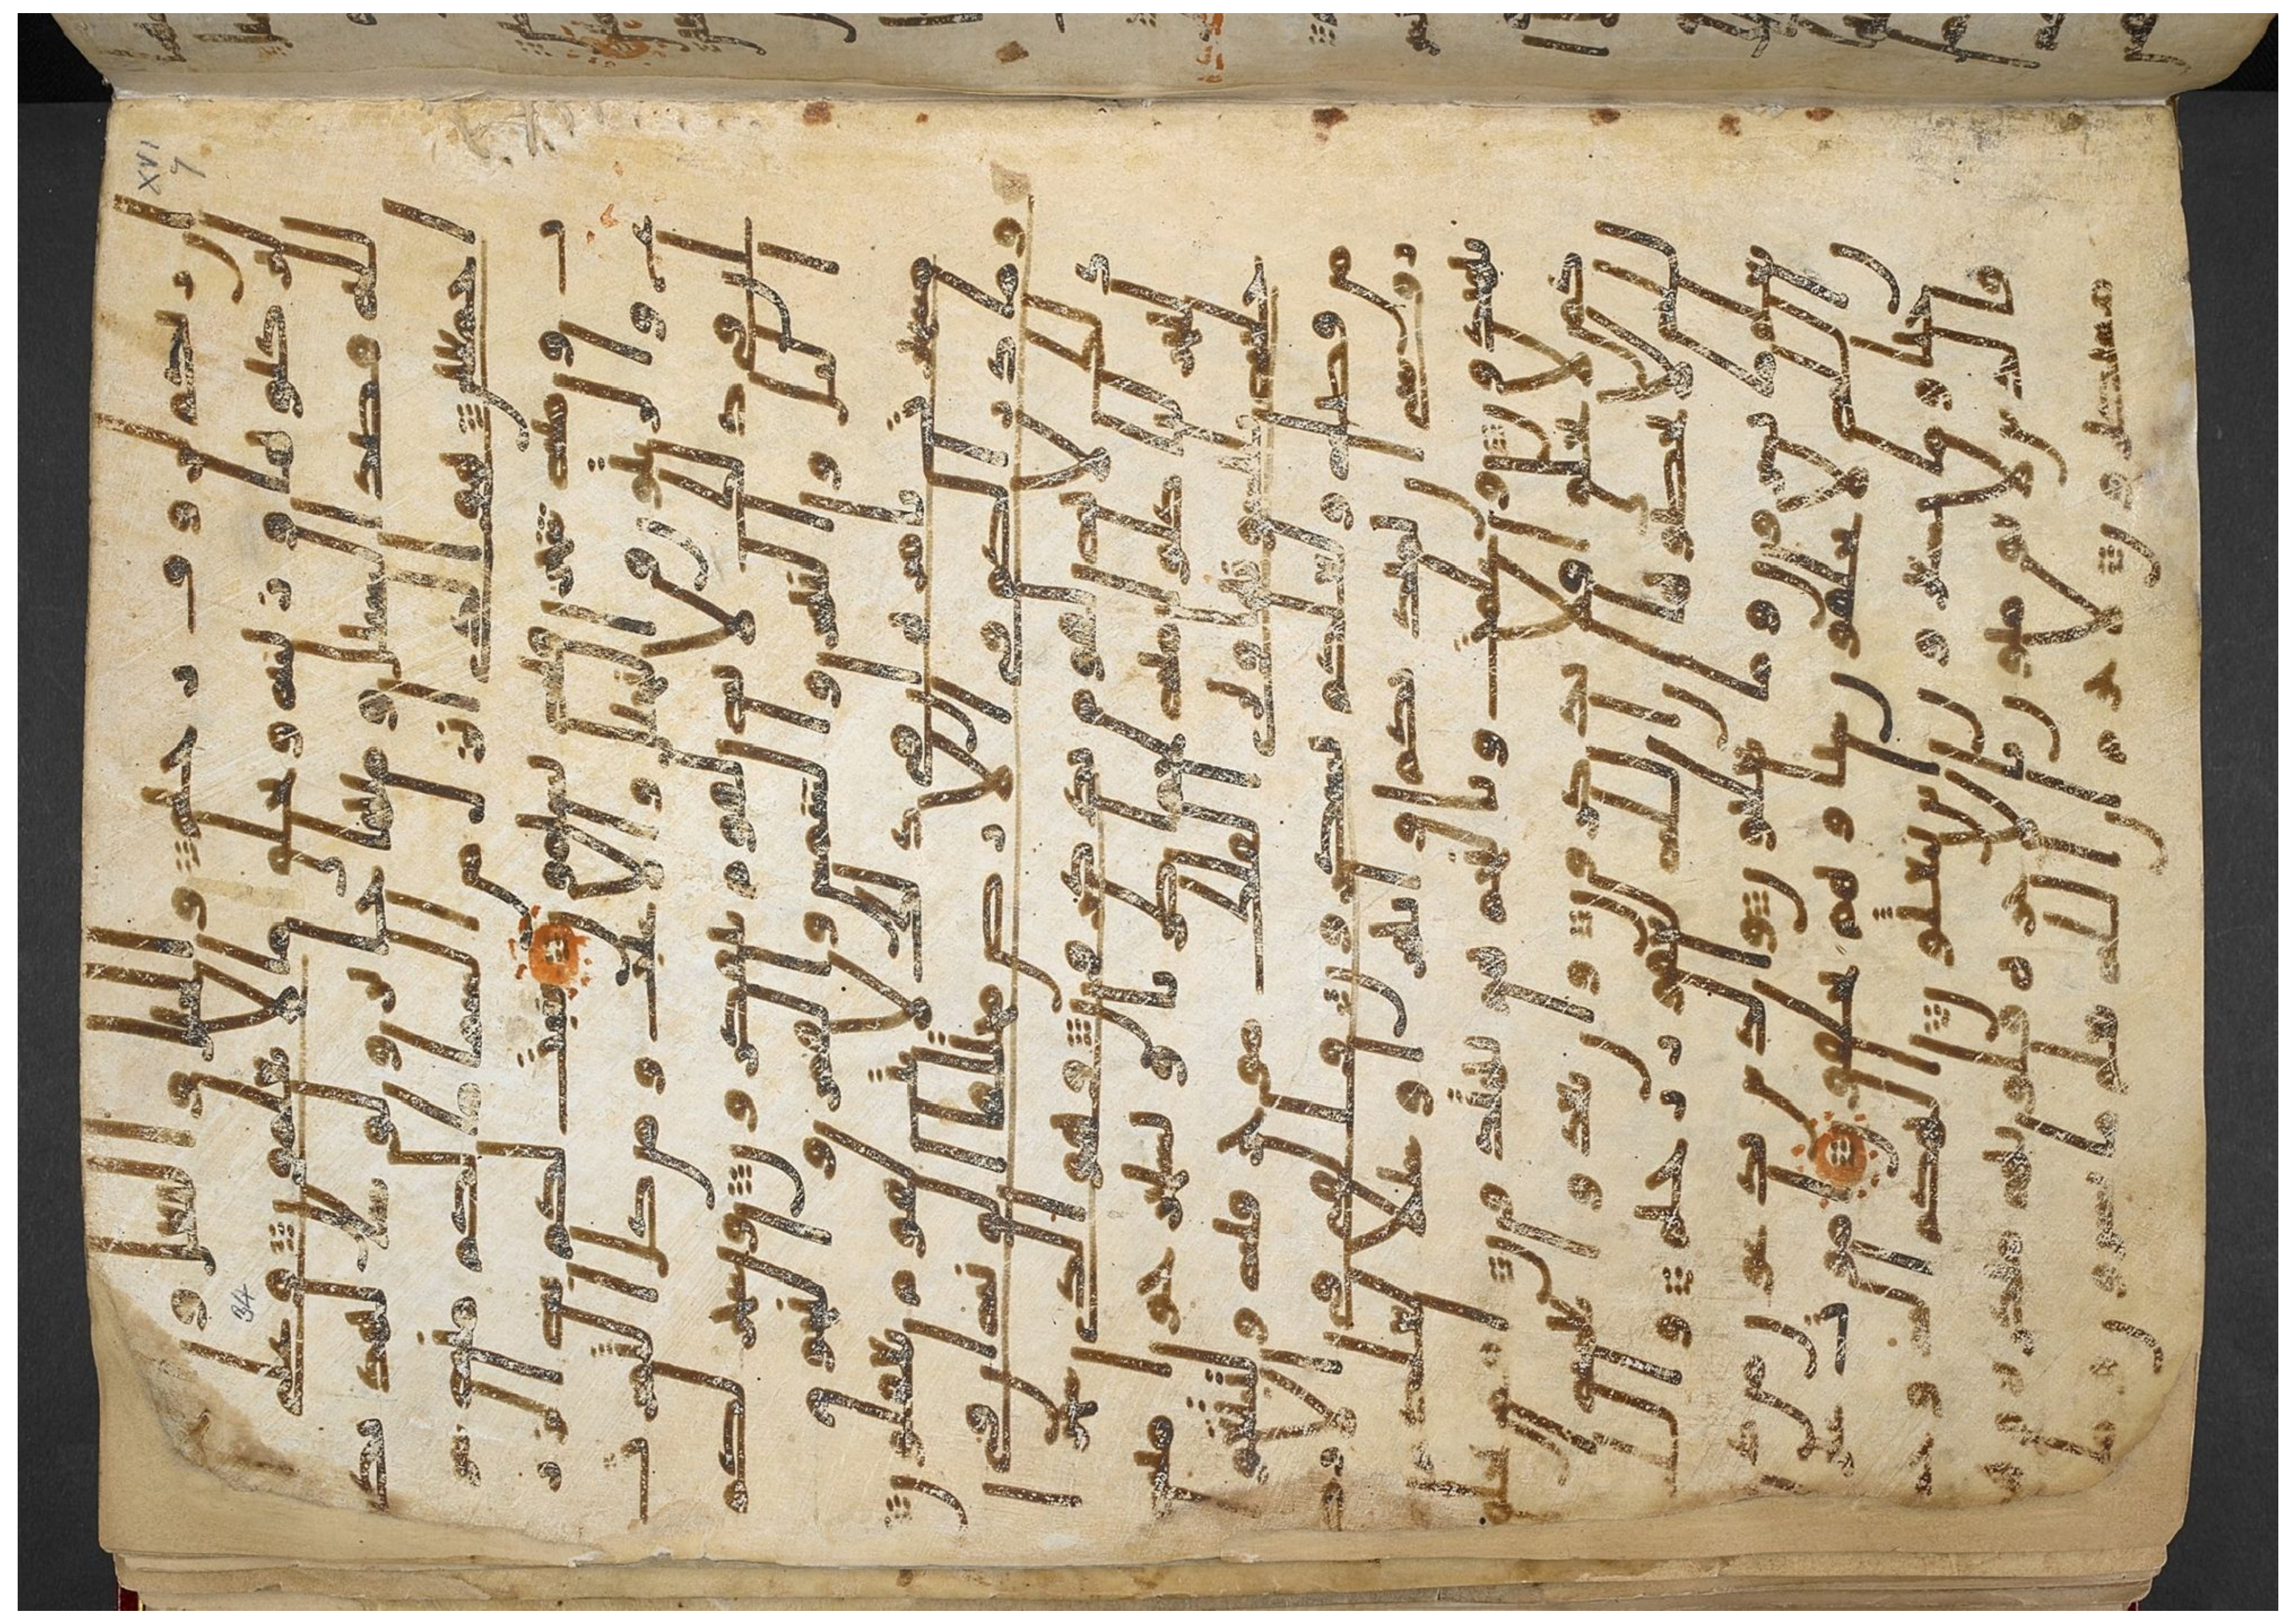 ان ربكم لروف رحيم والخيل والبغل وا
لحمير لتركبوها وزينة ويخلق ما لا تعلمون وعلى
الله قصد السبيل ومنها جاير ولو شا لهديكم
اجمعين هو الذي انزل من السما ما لكم منه
شراب ومنه شجر فيه تسيمون ينبت لكم به الزرع و
الزيتون والنخيل والاعنب ومن كل الثمرت
ان في ذلك لاية لقوم يتفكرون وسخر لكم
اليل والنهار والشمس والقمر والنجوم
مسخرت بامره ان في ذلك لايت لقوم يعقلون
وما ذرا لكم في الارض مختلفا الونه ان في
ذلك لاية لقوم يذكرون وهو الذي سخر
البحر لتاكلوا منه لحما طريا وتستخرجوا منه
حلية تلبسونها وترى الفلك موخر فيه ولتبتغوا
من فضله ولعلكم تشكرون والقى في الا
رض روسي ان تميد بكم وانهرا وسبلا لعلكم
تهتدون وعلمت وبالنجم هم يهتدون افمن يخلق
كمن لا يخلق افلا تذكرون وان تعدوا نعمة
الله لا تحصوها ان الله لغفور رحيم والله
يعلم ما تسرون وما تعلنون والذين يدعون من
دون الله لا يخلقون شيا وهم يخلقون اموت غير
احيا وما يشعرون ايان يبعثون الهكم اله و
حد فالذين لا يومنون بالاخرة قلوبهم منكرة
وهم مستكبرون لا جرم ان الله يعلم ما يسرون وما
XVI
7
34